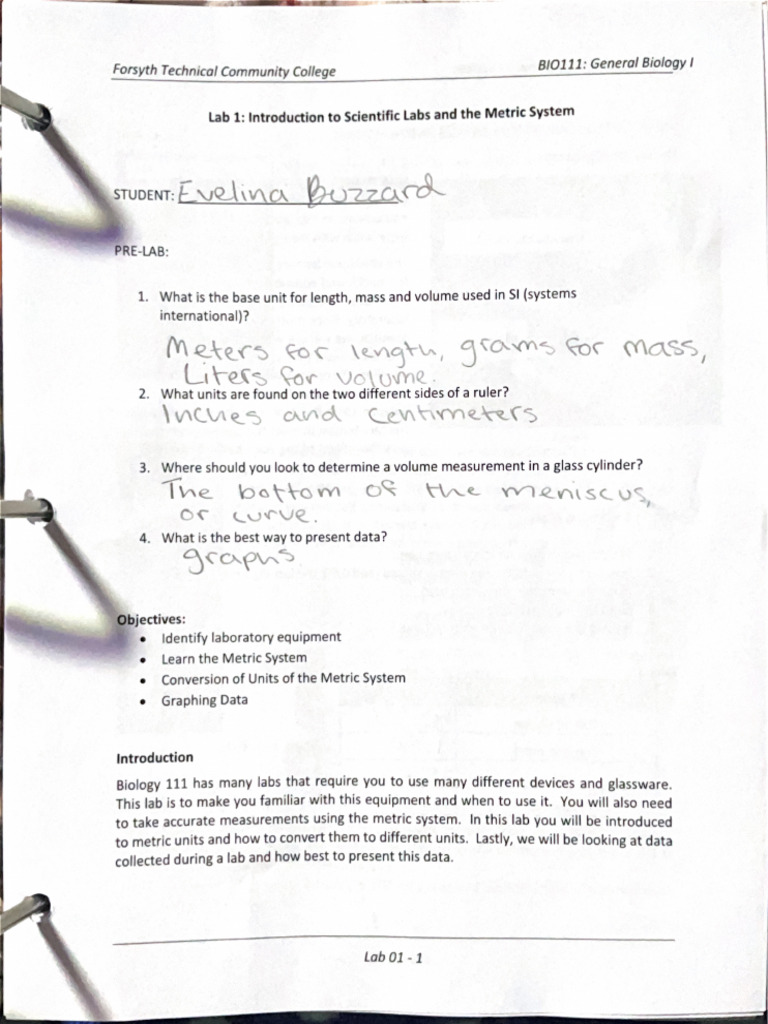 Forsyth Technical Community College
BIO111: General Biology I
Lab 1: Introduction to Scientific Labs and the Metric System
STUDENT: Evelina Buzzard
PRE-LAB:
1. What is the base unit for length, mass and volume used in SI (systems
international)?
Meters for length, grams for mass,
Liters for volume.
2. What units are found on the two different sides of a ruler?
Inches and centimeters
3. Where should you look to determine a volume measurement in a glass cylinder?
The bottom of the meniscus,
or curve.
4. What is the best way to present data?
graphs
Objectives:
• Identify laboratory equipment
• Learn the Metric System
• Conversion of Units of the Metric System
• Graphing Data
Introduction
Biology 111 has many labs that require you to use many different devices and glassware.
This lab is to make you familiar with this equipment and when to use it. You will also need
to take accurate measurements using the metric system. In this lab you will be introduced
to metric units and how to convert them to different units. Lastly, we will be looking at data
collected during a lab and how best to present this data.
Lab 01 - 1